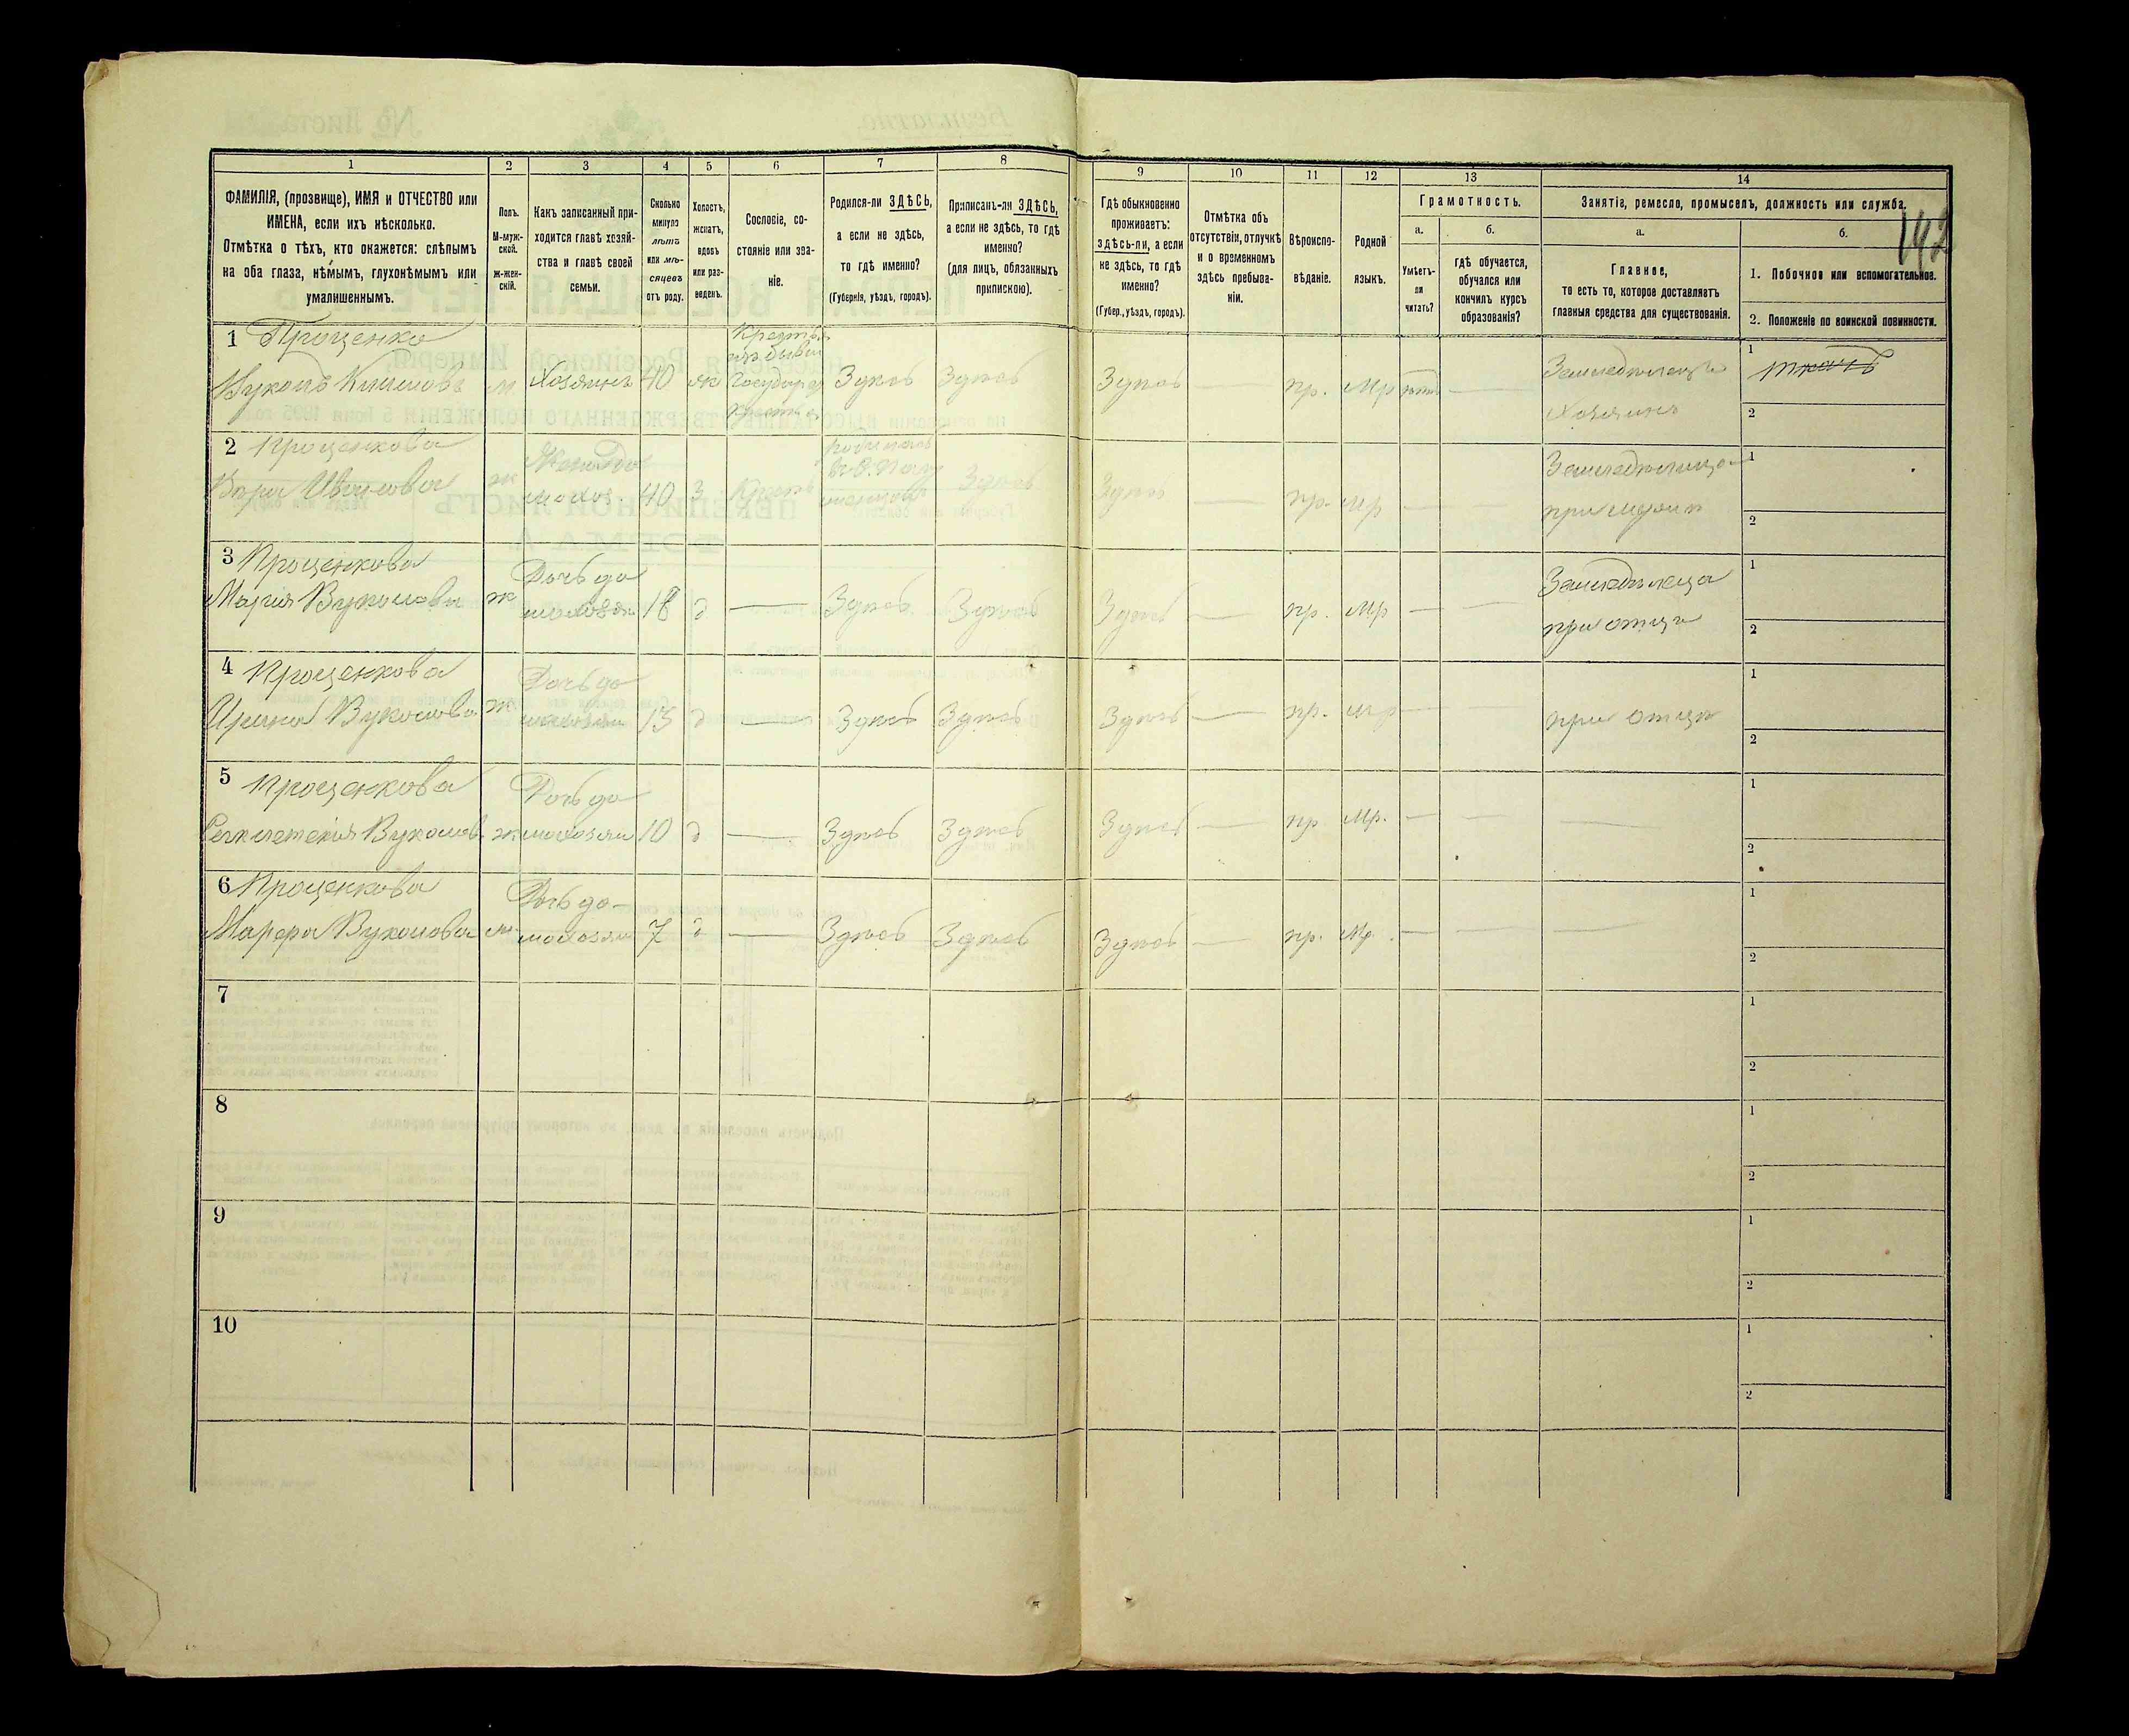 1 2 3 4 5 6 7 8 9 10 11 12 13 14
ФАМИЛІЯ, (прозвище), ИМЯ и ОТЧЕСТВО или
ИМЕНА, если ихъ нѣсколько.
Отмѣтка о тѣхъ, кто окажется: слѣпымъ
на оба глаза, нѣмымъ, глухонѣмымъ или
умалишеннымъ.
Полъ.
М-муж-
ской.
Ж-жен-
скій.
Какъ записанный при-
ходится главѣ хозяй-
ства и главѣ своей
семьи.
Сколько
минуло
лѣтъ
или мѣ-
сяцевъ
отъ роду.
Холостъ,
женатъ,
вдовъ
или раз-
веденъ.
Сословіе, со-
стояніе или зва-
ніе.
Родился-ли ЗДѢСЬ,
а если не здѣсь,
то гдѣ именно?
(Губернія, уѣздъ, городъ).
Приписанъ-ли ЗДѢСЬ,
а если не здѣсь, то гдѣ
именно?
(для лицъ, обязанныхъ
припискою).
Гдѣ обыкновенно
проживаетъ:
здѣсь-ли, а если
не здѣсь, то гдѣ
именно?
(Губер., уѣздъ, городъ).
Отмѣтка объ
отсутствіи, отлучкѣ
и о временномъ
здѣсь пребыва-
ніи.
Вѣроиспо-
вѣданіе.
Родной
языкъ.
Грамотность.
а.
Умѣетъ-
ли
читать?
б.
гдѣ обучается,
обучался или
кончилъ курсъ
образованія?
Занятіе, ремесло, промыселъ, должность или служба.
а.
Главное,
то есть то, которое доставляетъ
главныя средства для существованія.
б.
142
1. Побочное или вспомогательное.
2. Положеніе по воинской повинности.
1 Проценко
Вуколъ Климовъ м Хозяинъ 40 ж Здѣсь Здѣсь Здѣсь — пр. Мр —
Земледѣлецъ
Хозяинъ
1
2
2 Проценкова
Ивановна ж 40 З Здѣсь Здѣсь — пр. Мр — —
Земледѣлица
при мужѣ
1
2
3 Проценкова
Марія Вуколова ж Дочь до
мохозя 18 д — Здѣсь Здѣсь Здѣсь — пр. Мр — —
Земледѣлица
при отцѣ
1
2
4 Проценкова
Ирина Вуколова ж Дочь до
мохозяи 13 д — Здѣсь Здѣсь Здѣсь — пр. Мр — —
при отцѣ
1
2
5 Проценкова
Вуколов ж Дочь до
мохозяи 10 д — Здѣсь Здѣсь Здѣсь — пр Мр. — — —
1
2
6 Проценкова
Марфа Вуколова Дочь до-
мохозяи 7 д — Здѣсь Здѣсь Здѣсь — пр. Мр. — — —
1
2
7
1
2
8
1
2
9
1
2
10
1
2